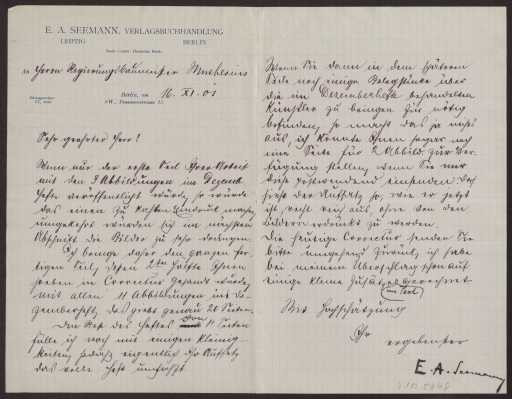 E. A. SEEMANN, VERLAGSBUCHHANDLUNG
LEIPZIG BERLIN
Herrn Regierungsbaumeister Muthesius
Berlin, den 16. XI. 01
Sehr geehrter Herr!
Wenn nur der erste Teil Ihrer Arbeit
mit den 9 Abbildungen im Dezemb.
Hefte veröffentlicht würde, so würde
das einen zu kurzen Eindruck machen,
umgekehrt würden sich im nächsten
Abschnitt die Bilder zu sehr drängen.
Ich bringe daher den ganzen fer-
tigen Teil, dessen 2te Hälfte Ihnen
soeben in Correctur gesandt wurde,
mit allen 11 Abbildungen im De-
zemberheft, das giebt genau 20 Seiten.
Den Rest des Heftes von 4 Seiten
fülle ich noch mit einigen Kleinig-
keiten, sodaß eigentlich Ihr Aufsatz
das volle Heft umfasst.
Wenn Sie dann in dem späteren
Teile noch einige Belegstücke über
die im Dezemberheft behandelten
Künstler zu bringen für nötig
befinden, so macht das ja nichts
aus, ich könnte Ihnen sogar noch
eine Seite für 2 Abbild. zur Ver-
fügung stellen, wenn Sie mir
diese postwendend einsenden. Doch
sieht der Aufsatz so, wie er jetzt
ist, recht fein aus, ohne von den
Bildern erdrückt zu werden.
Die heutige Correctur senden Sie
bitte umgehend zurück, ich habe
bei meinem Überschlag schon auf
einige kleine Zusätze gerechnet
im Text
Mit Hochschätzung
Ihr
ergebenster
E. A. Seemann